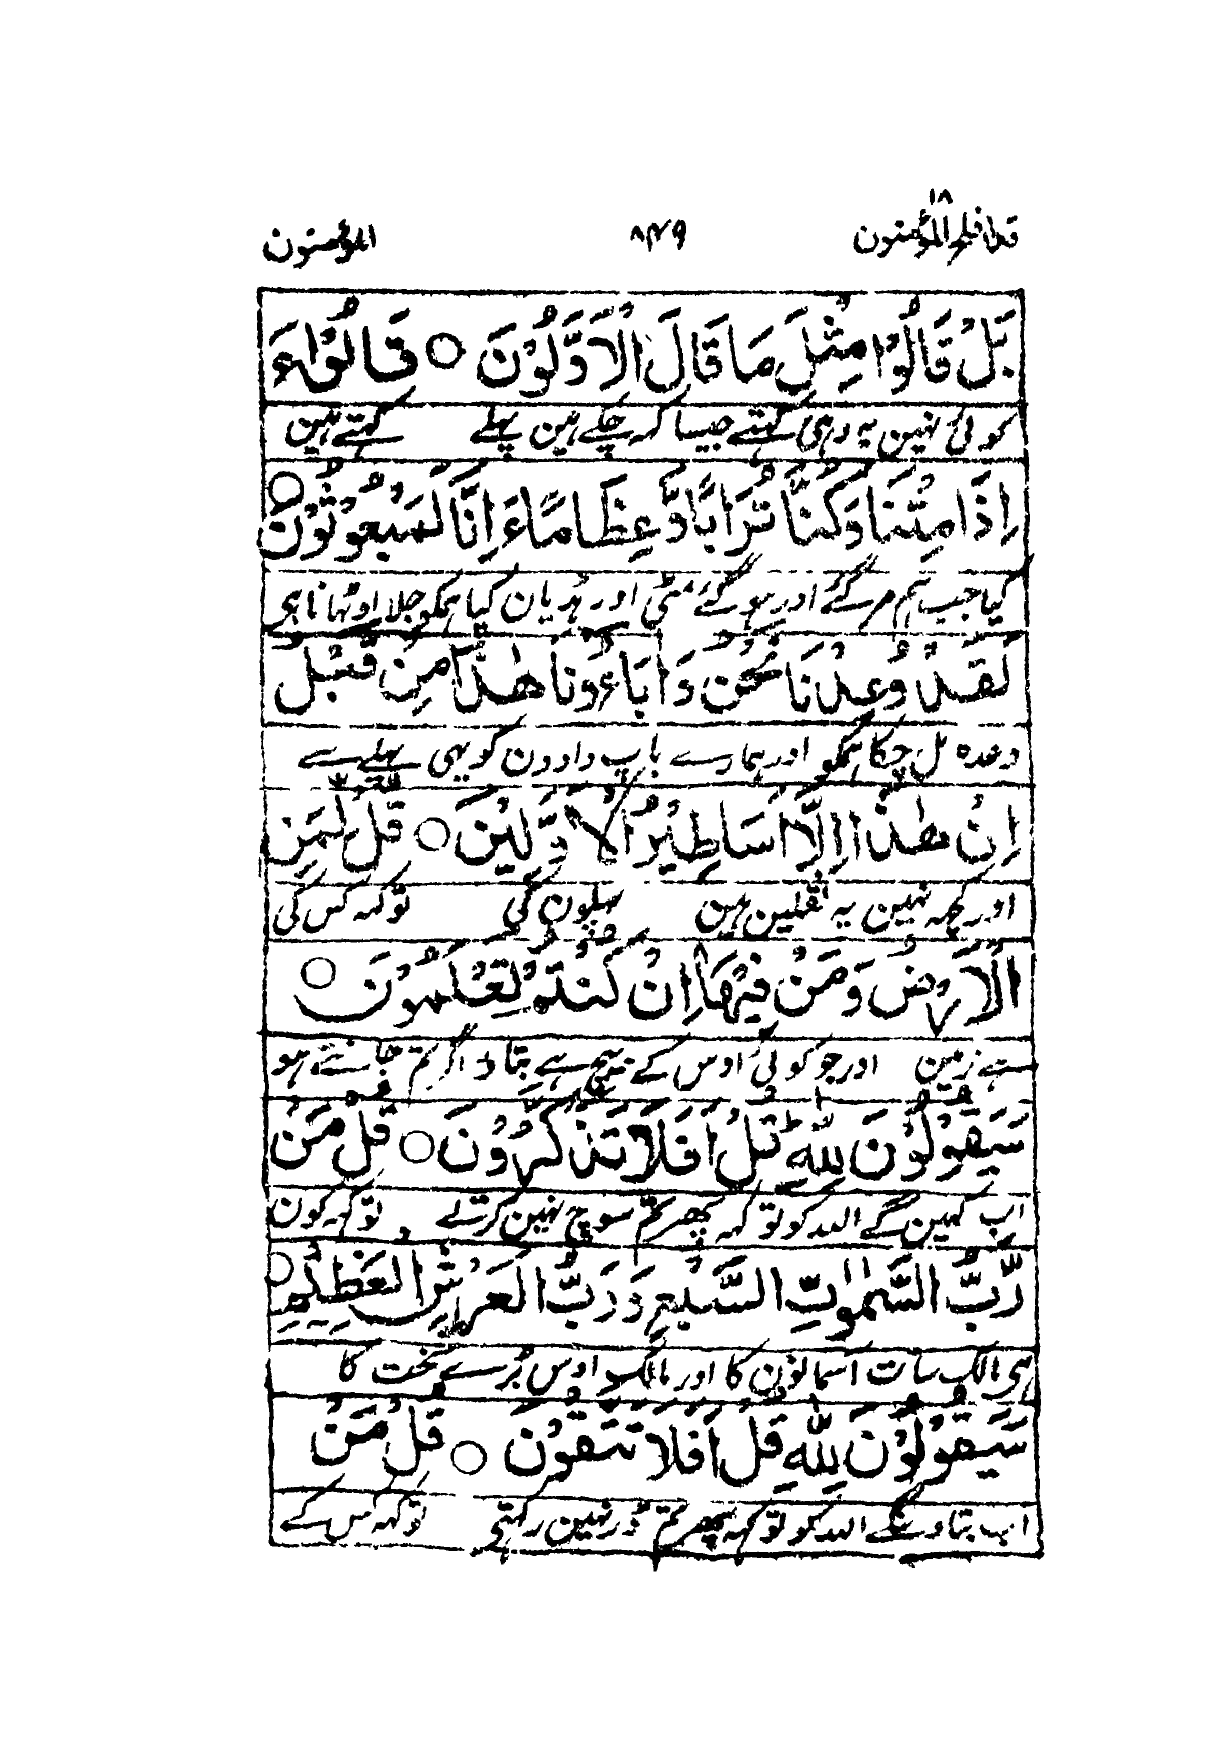 ۱۸
قد افلح المؤمنون ۸۴۹ المؤمنون
بَلْ قَالُوْا مِثْلَ مَا قَالَ الْاَوَّلُوْنَ ○ قَالُوْٓا ءَ
کوئی نہین یہ وہی کہتے جیسا کہہ چکے ہین پہلے کہتے ہین
اِذَا مِتْنَا وَكُنَّا تُرَابًا وَّ عِظَامًا ءَ اِنَّا لَمَبْعُوْثُوْنَ ○
کیا جب ہم مر گئے اور ہو گئے مٹی اور ہڈیان کیا ہمکو جلا اوٹھانا ہی
لَقَدْ وُعِدْنَا نَحْنُ وَ اٰبَآءُوْنَا هٰذَا مِنْ قَبْلُ
وعدہ مل چکا ہمکو اور ہمارے باپ دادون کو یہی پہلے سے
اِنْ هٰذَا اِلَّا اَسَاطِيْرُ الْاَوَّلِيْنَ ○ قُلْ لِّمَنِ
اور کچھہ نہین یہ نقلین ہین پہلون کی تو کہہ کس کی
الْاَرْضُ وَ مَنْ فِيْهَا اِنْ كُنْتُمْ تَعْلَمُوْنَ ○
ہے زمین اور جو کوئی اوس کے بیچ ہے بتاؤ اگر تم جانتے ہو
سَيَقُوْلُوْنَ لِلّٰهِ ؕ قُلْ اَفَلَا تَذَكَّرُوْنَ ○ قُلْ مَنْ
اب کہین گے اللہ کو تو کہہ پھر تم سوچ نہین کرتے تو کہہ کون
رَّبُّ السَّمٰوٰتِ السَّبْعِ وَ رَبُّ الْعَرْشِ الْعَظِيْمِ ○
ہی مالک سات آسمانون کا اور مالک اوس بڑے تخت کا
سَيَقُوْلُوْنَ لِلّٰهِ قُلْ اَفَلَا تَتَّقُوْنَ ○ قُلْ مَنْ
اب بتاوینگے اللہ کو تو کہہ پھر تم ڈر نہین رکہتی تو کہہ کس کے